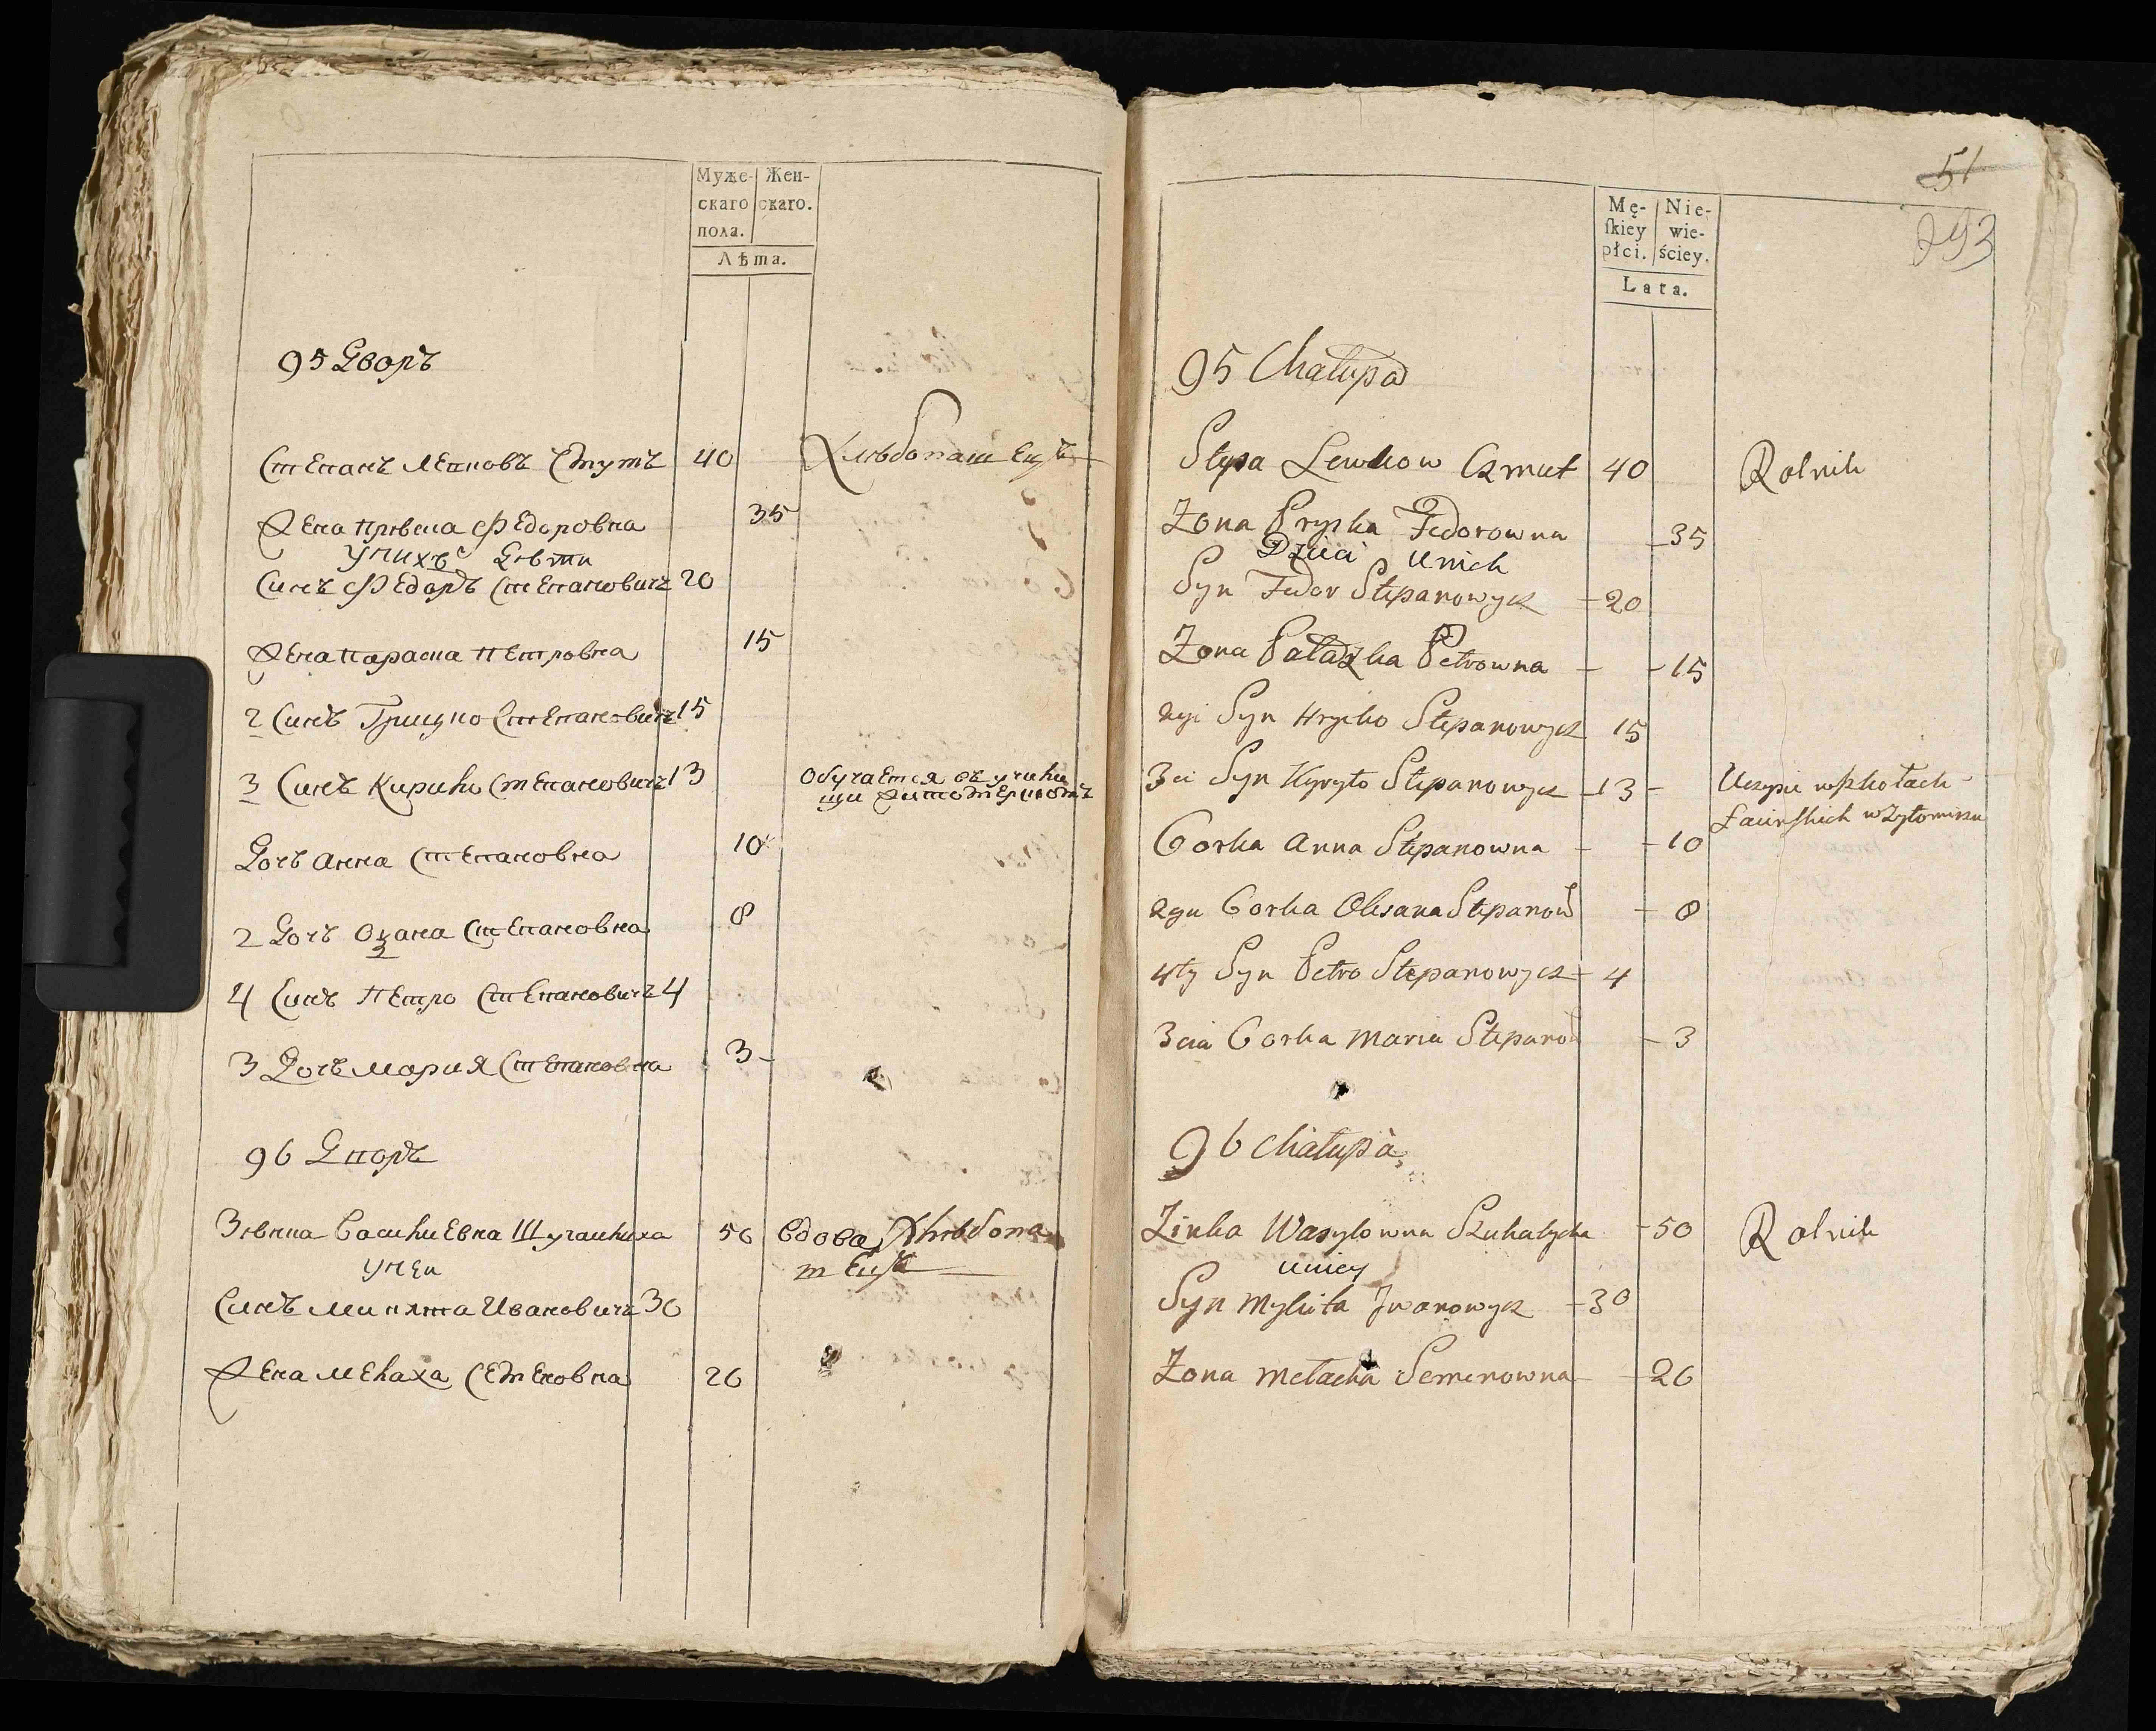 Муже-
скаго
пола.
Жен-
скаго.
Лѣта.
95 Дворъ
Степанъ Левковъ Смутъ 40 Хлѣбопашецъ
Жена Прѣска Федоровна 35
Унихъ Дѣти
Синъ Федоръ Степановичъ 20
Жена Параска Петровна 15
2 Синъ Грицко Степановичъ 15
3 Синъ Кирило Степановичъ 13 Обучается въ учили
щи Житомерскомъ
Дочъ Анна Степановна 10
2 Дочъ Оксана Степановна 8
4 Синъ Петро Степановичъ 4
3 Дочъ Мария Степановна 3
96 Дворъ
Зѣнка Василиевна Шукалиха 50 Вдова Хлѣбопа
шецъ
Унеи
Синъ Микита Ивановичъ 30
Жена Мелаха Семеновна 26
51
293
Mę-
ſkiey
płci.
Nie-
wie-
ściey.
Lata.
95 Chałupa
Stepa Lewkow Czmut 40 Rolnik
Zona Pryska Fedorowna 35
Dzieci Unich
Syn Fedor Stepanowycz 20
Zona Pałazka Petrowna 15
2gi Syn Hryćko Stepanowycz 15
3ci Syn Kyryło Stepanowycz 13 Uczysie wszkołach
Łacinskich w Zytomirzu
Corka Anna Stepanowna 10
2ga Corka Oksana Stepanow 8
4ty Syn Petro Stepanowycz 4
3cia Corka Maria Stepanow 3
96 Chałupa
Zinka Wasylowna Szukałycha 50 Rolnik
Uniey
Syn Mykita Jwanowycz 30
Zona Mełacha Semenowna 26